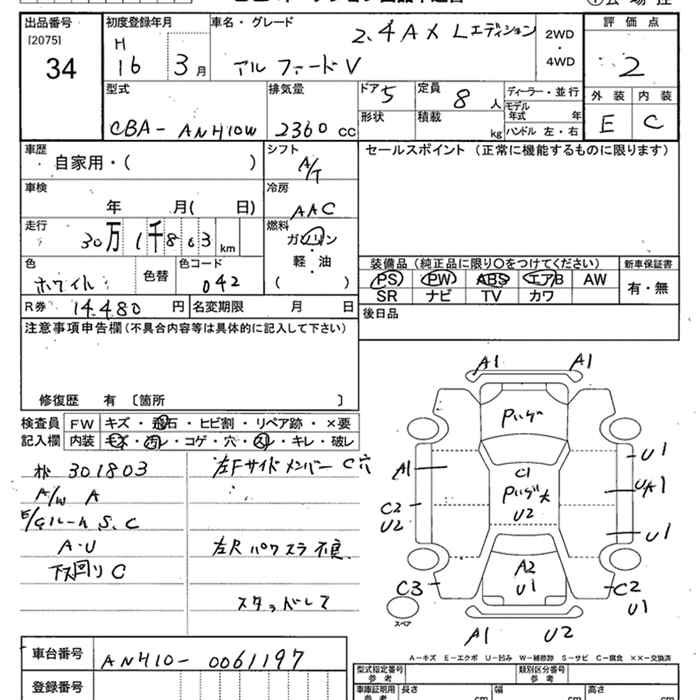 出品番号 初度登録年月 車名・グレード 評価点
[2075] H 2.4 AX Lエディション 2WD
34 16 3月 アルファードV ・ 4WD 2
型式 排気量 ドア 5 定員 8人 ディーラー・並行 外装 内装
CBA-ANH10W 2360cc 形状 積載 kg モデル年式 年 E C
ハンドル 左・右
車歴 シフト セールスポイント（正常に機能するものに限ります）
自家用・（ ） A/T
車検 冷房
年 月( 日) AAC
走行 燃料
30万1千803km ガソリン
・
軽・油
色 色替 色コード ( ) 装備品（純正品に限り○をつけてください） 新車保証書
ホワイト 042 PS PW ABS エアB AW 有・無
R券 14,480円 名変期限 月 日 SR ナビ TV カワ
注意事項申告欄（不具合内容等は具体的に記入して下さい） 後日品
修復歴 有 〔箇所 〕
検査員 FW キズ・飛石・ヒビ割・リペア跡・×要
記入欄 内装 キズ・汚レ・コゲ・穴・スレ・キレ・破レ
301803 左Fサイドメンバー C穴
A/W A
E/Gルーム S.C
A・U 左R パワスラ不良
下回り C
スタッドレス
A1 A1
A1 C1 U1
C2 U2 U2 UA1
U1
C3 A2 U1 C2 U1
スペア
A1 U2
A－キズ E－エクボ U－凹み W－補修跡 S－サビ C－腐食 ××－交換済
車台番号 ANH10-0061197
登録番号
型式指定番号 参考 類別区分番号 参考
車庫証明用 参考 長さ cm 幅 cm 高さ cm